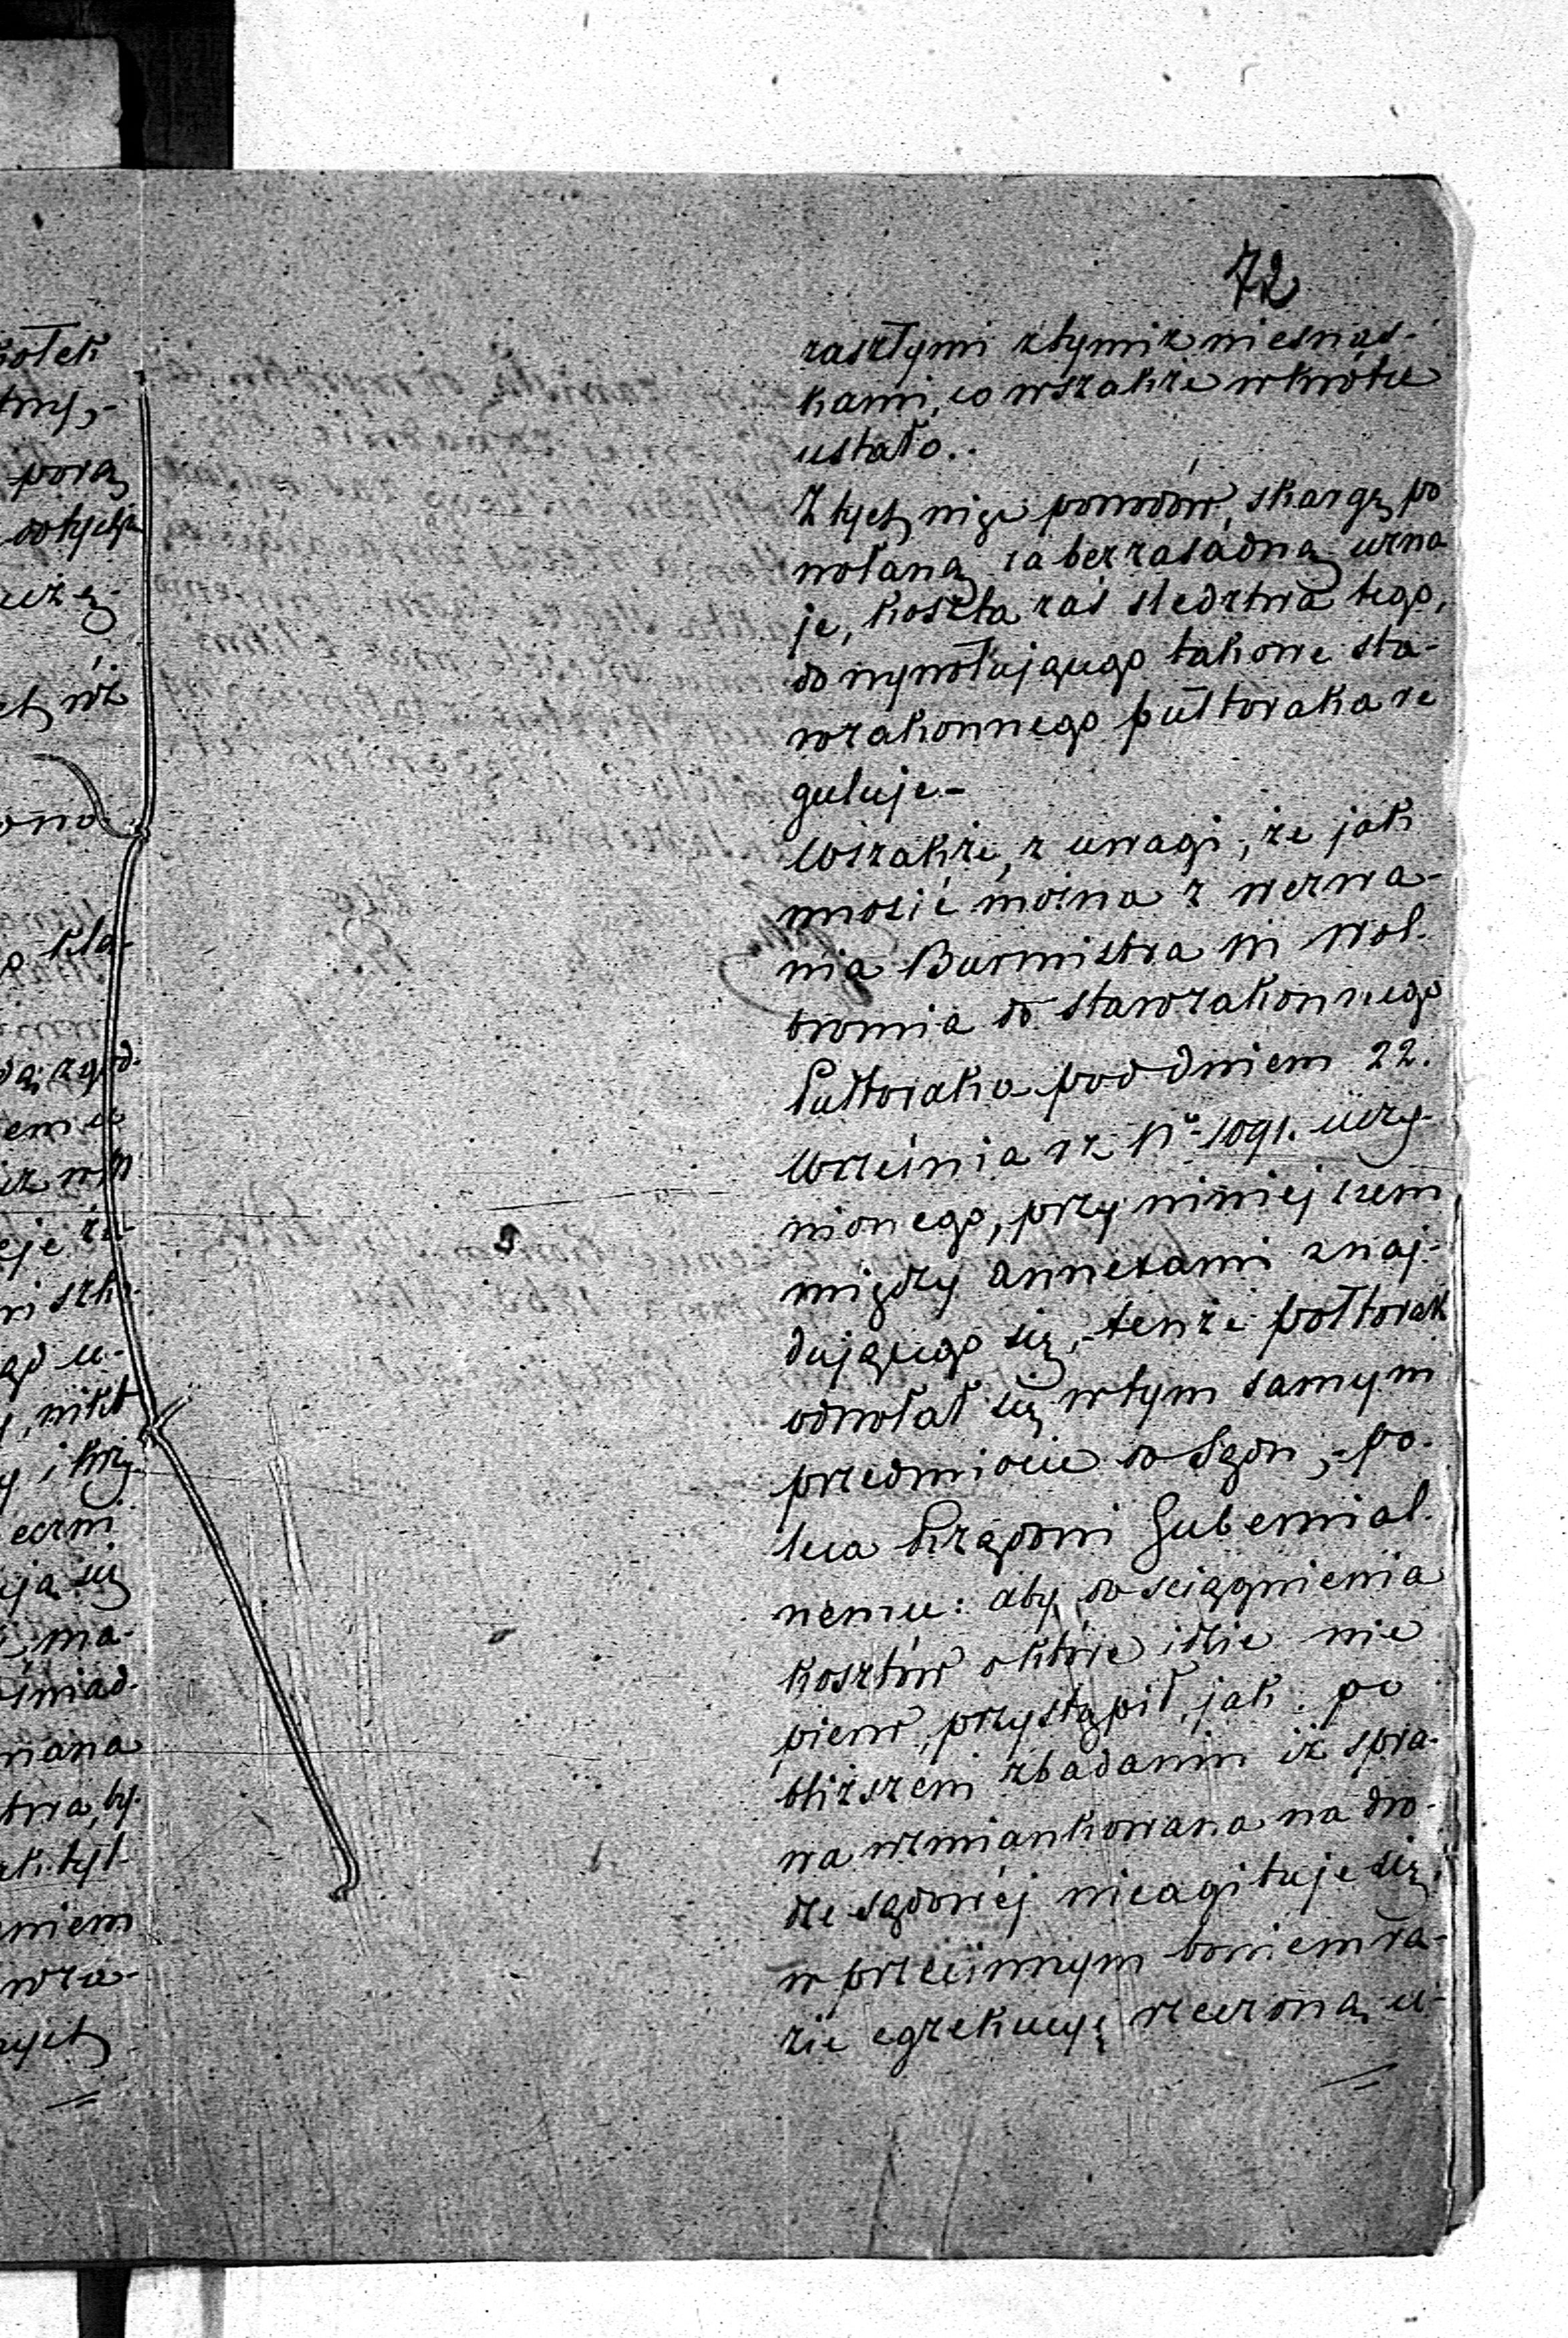 72
zaszłymi ztymiż niesnas-
kami, co wszakże wkrótce
ustało..
Z tych, niże powodów, skargę po
wołaną za bezzasadną uzna
je, koszta zaś śledztwa tego,
do wywołującego takowe sta-
wzakonnego pułtoraka re
guluje-
Wszakże, z uwagi, że jak
wnosić można z wezwa-
nia Burmistra M Wol-
bromia do starozakonnego
Pułtoraka pod dniem 22.
Września rz No 1091. uczy-
nionego, przy niniejszem
między annexami znaj-
dującego się, tenże połtorak
odwołał się wtym samym
przedmiocie do Sądu, - po-
leca Rządowi Gubernial-
nemu: aby do ściągnienia
kosztów o które idzie nie
pierw przystąpił, jak po
bliższem zbadaniu iż spra-
wa wzmiankowana na dro-
dze sądowej nieagituje się,
w przeciwnym bowiem ra-
zie egzekucyę rzeczoną u-
kołek
porą
kła-
nikt
i krzy-
się
ma-
świad-
niem